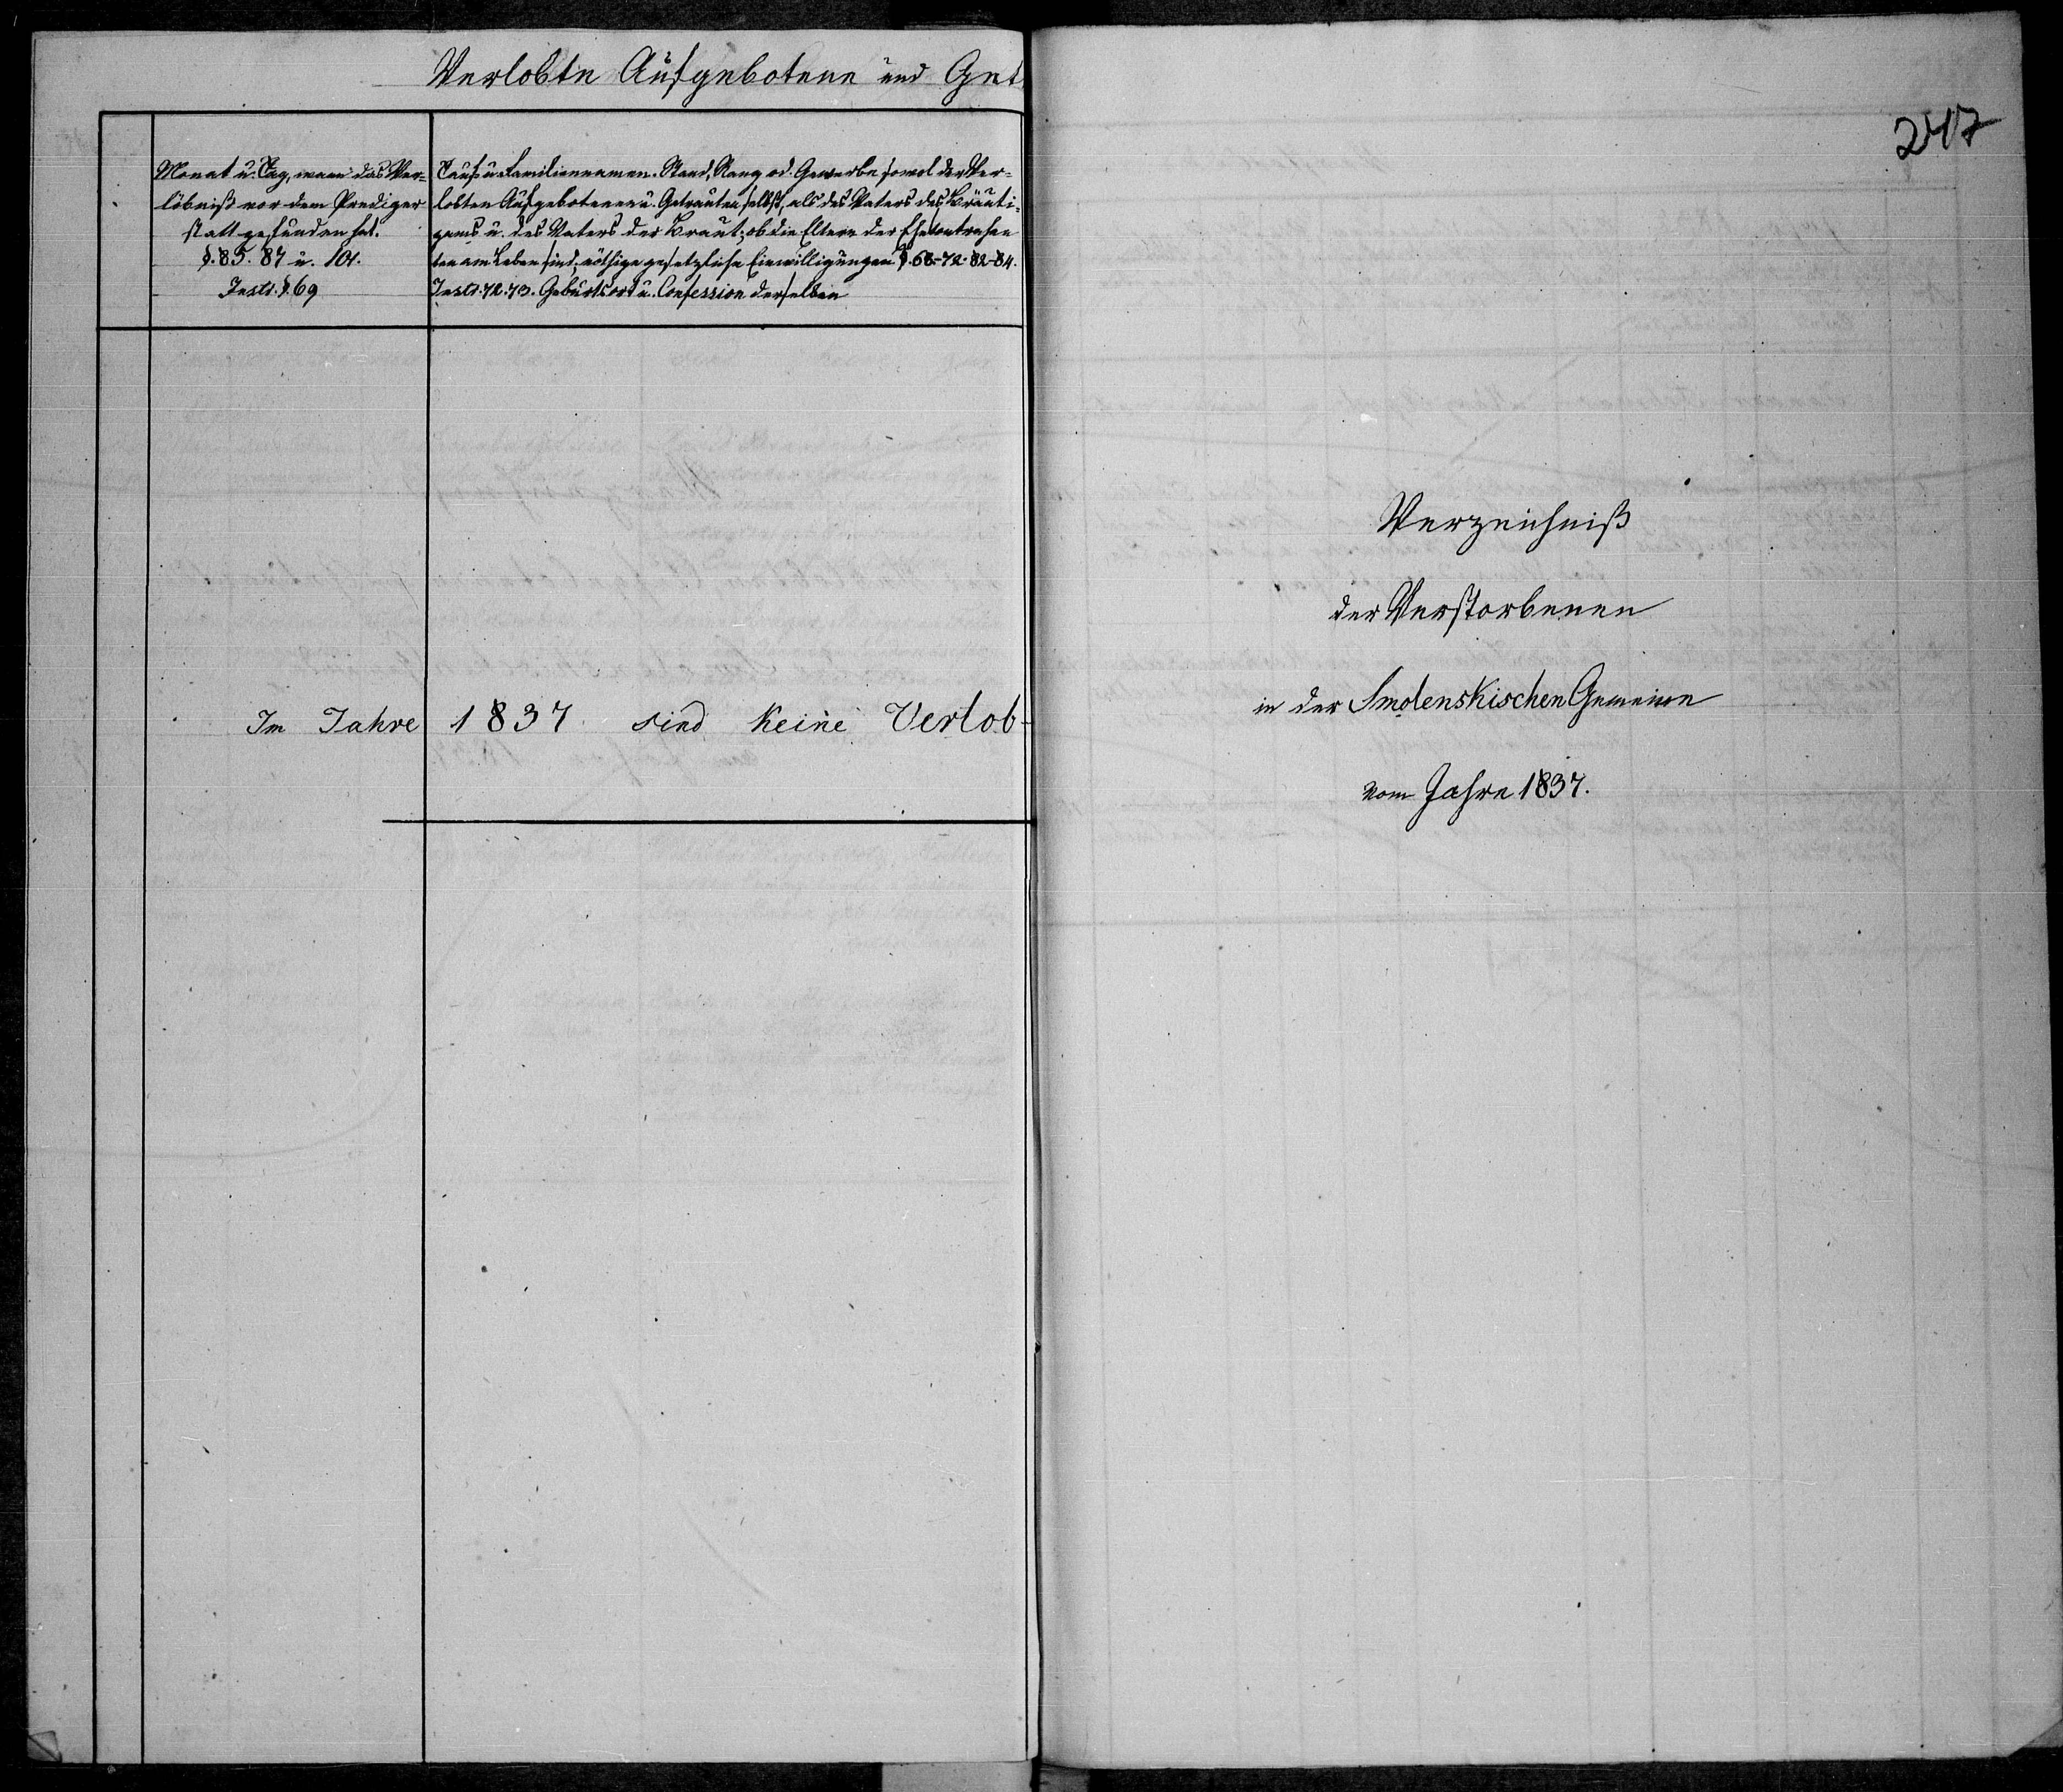 Verlobte Aufgebotene und Get
Monat u. Tag, wann das Ver-
löbniß vor dem Prediger
statt gefunden hat.
§. 85. 87 u. 101.
Instr. §. 69
Tauf u. Familiennamen. Stand, Rang od. Gewerbe sowol der Ver-
lobten Aufgebotenen u. Getrauten selbst, als des Vaters des Bräuti-
gams u. des Vaters der Braut; ob die Eltern der Ehecontrahen
ten am Leben sind; nöthige gesetzliche Einwilligungen §. 68-72-82-84.
Instr. 72. 73. Geburtsort u. Confession derselben
Im Jahre 1837 sind keine Verlob-
247
Verzeichniß
der Verstorbenen
in der Smolenskischen Gemeine
vom Jahre 1837.